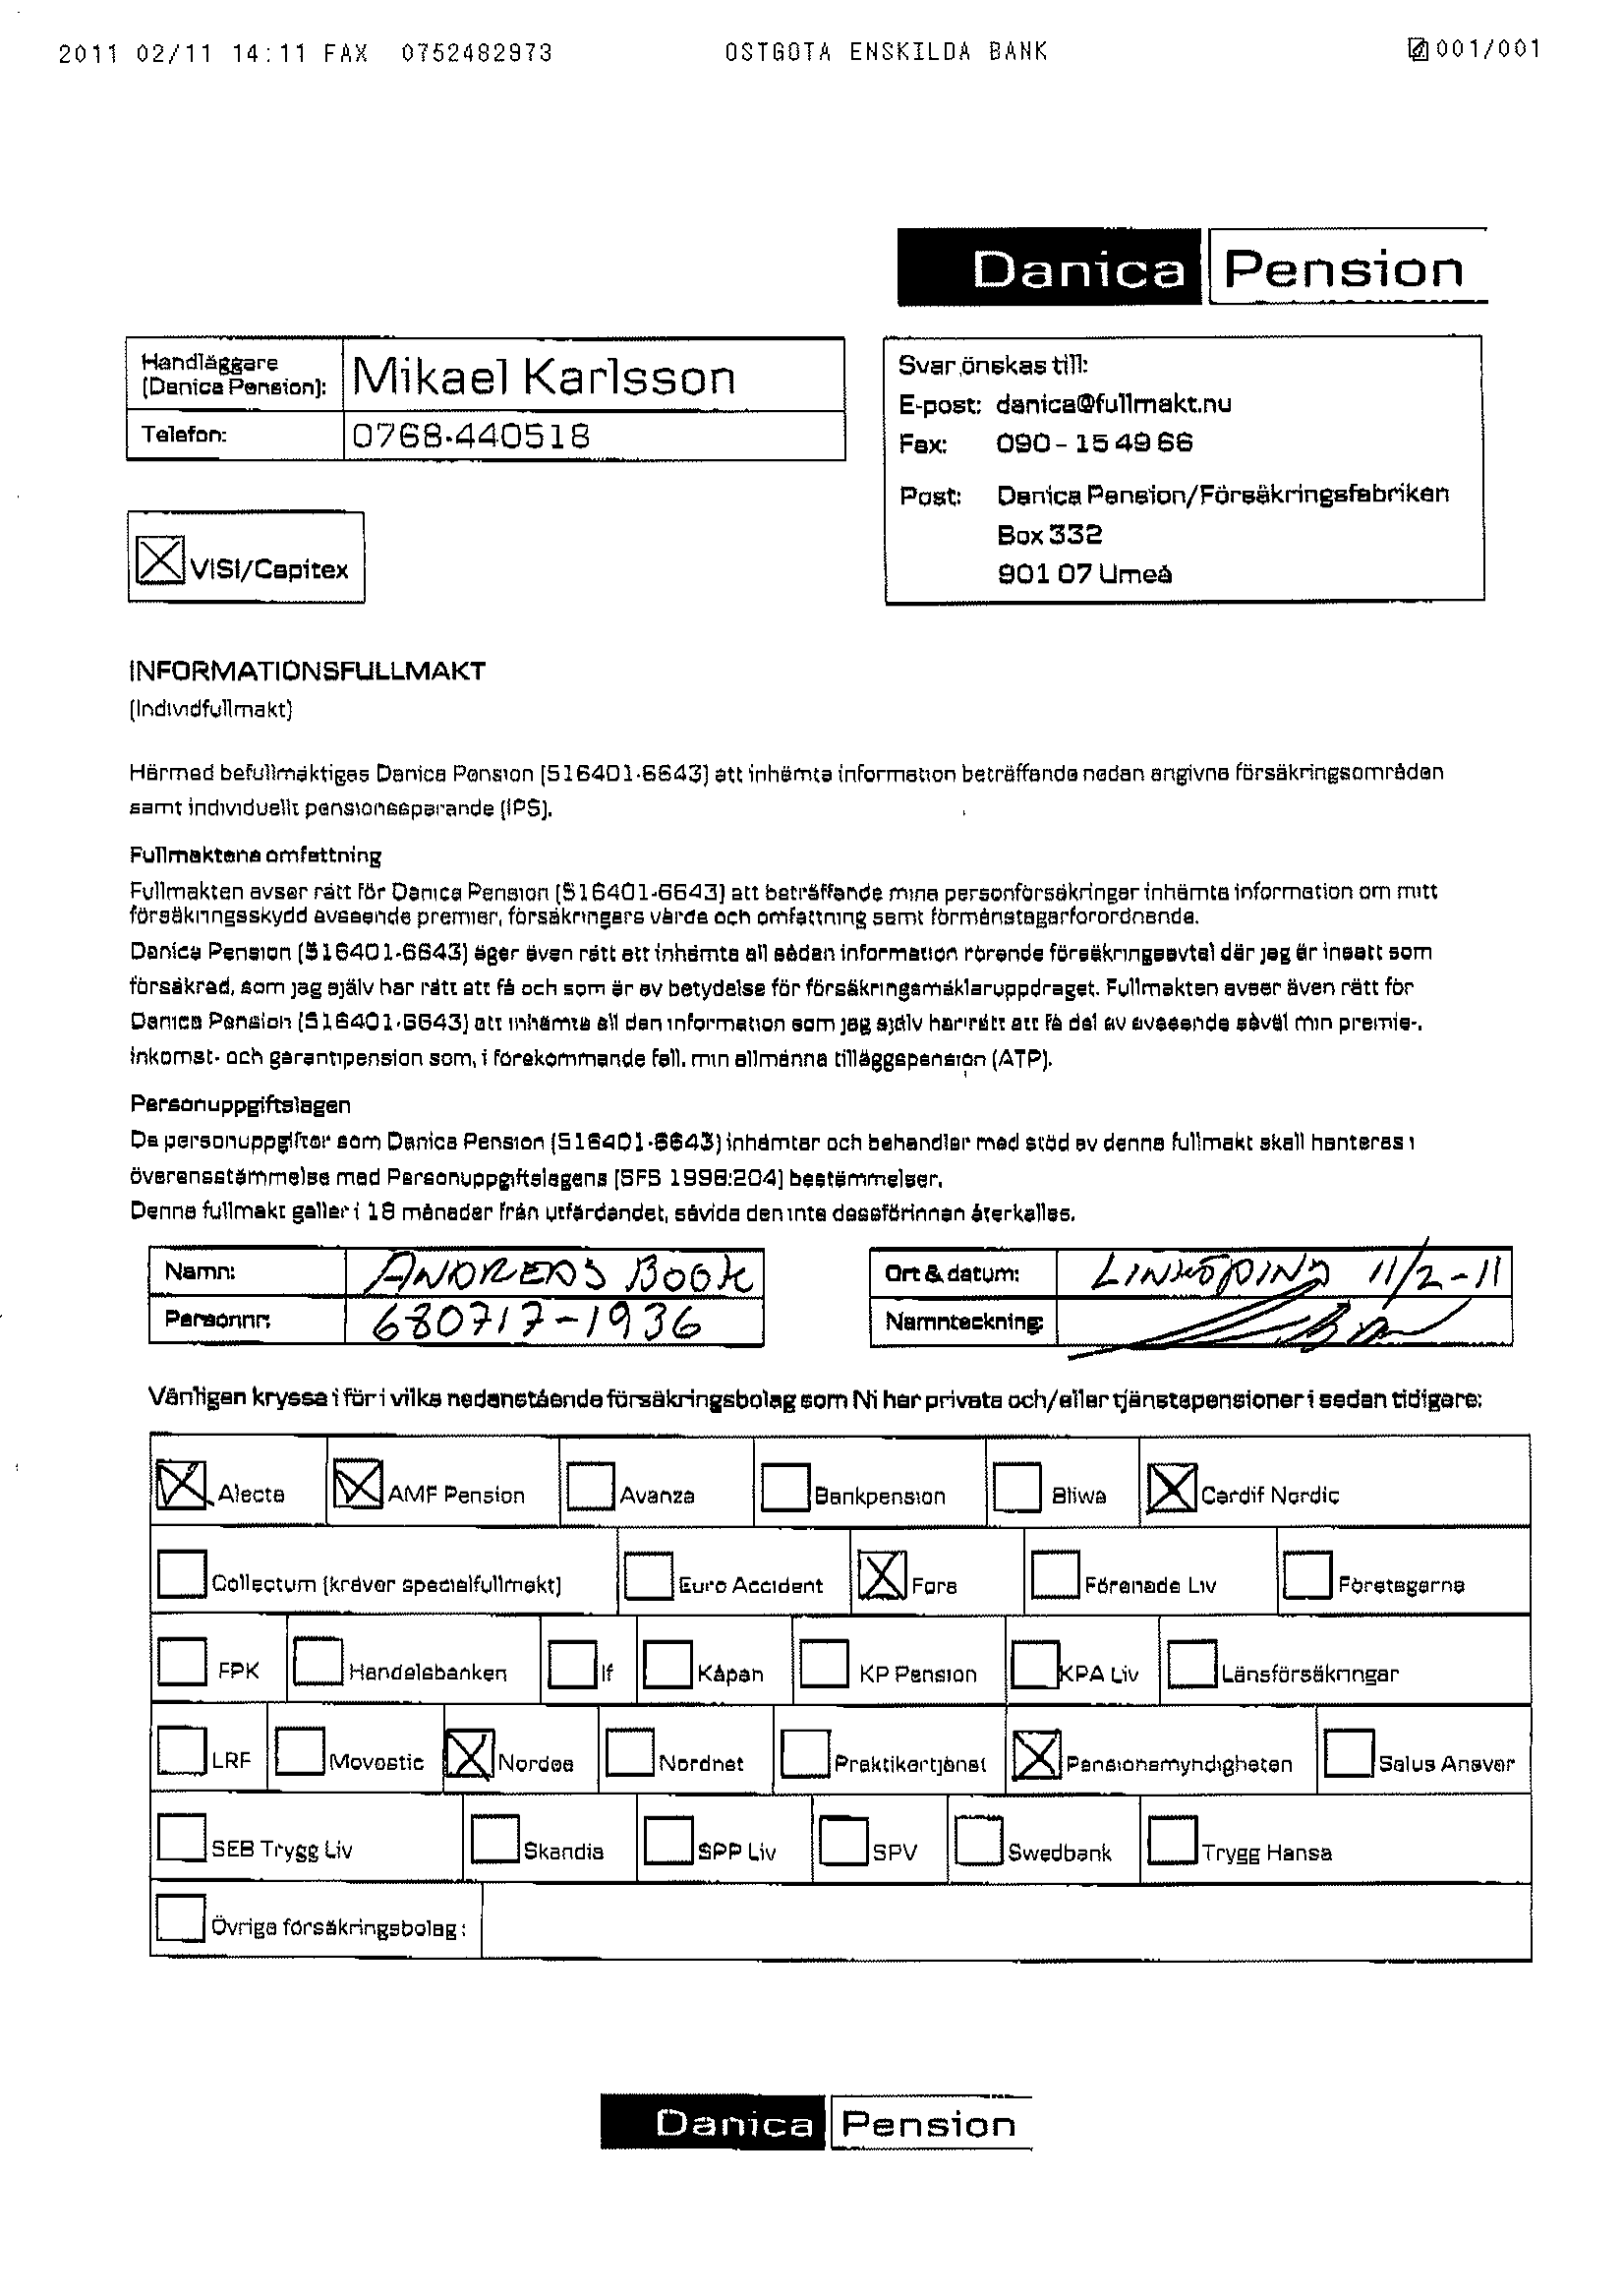 2011 02/11 14:11 FAX 0752482973 OSTGOTA ENSKILDA BANK 001/001
Danica Pension
Handläggare (Danica Pension): Mikael Karlsson
Telefon: 0768-440518
Svar önskas till:
E-post: danica@fullmakt.nu
Fax: 090-15 49 66
Post: Danica Pension/Försäkringsfabriken
Box 332
901 07 Umeå
VISI/Capitex
INFORMATIONSFULLMAKT
(Individfullmakt)
Härmed befullmäktigas Danica Pension (516401-6643) att inhämta information beträffande nedan angivna försäkringsområden
samt individuellt pensionssparande (IPS).
Fullmaktens omfattning
Fullmakten avser rätt för Danica Pension (516401-6643) att beträffande mina personförsäkringar inhämta information om mitt
försäkringsskydd avseende premier, försäkringars värde och omfattning samt förmånstagarförordnande.
Danica Pension (516401-6643) äger även rätt att inhämta all sådan information rörande försäkringsavtal där jag är insatt som
försäkrad, som jag själv har rätt att få och som är av betydelse för försäkringsmäklaruppdraget. Fullmakten avser även rätt för
Danica Pension (516401-6643) att inhämta all den information som jag själv har rätt att få del av avseende såväl min premie-,
inkomst- och garantipension som, i förekommande fall, min allmänna tilläggspension (ATP).
Personuppgiftslagen
De personuppgifter som Danica Pension (516401-6643) inhämtar och behandlar med stöd av denna fullmakt skall hanteras i
överensstämmelse med Personuppgiftslagens (SFS 1998:204) bestämmelser.
Denna fullmakt gäller i 18 månader från utfärdandet, såvida den inte dessförinnan återkallas.
Namn: ANDREAS BOOK
Personnr: 680717-1936
Ort & datum: LINKÖPING 11/2-11
Namnteckning:
Vänligen kryssa i för i vilka nedanstående försäkringsbolag som Ni har privata och/eller tjänstepensioner i sedan tidigare:
Alecta AMF Pension Avanza Bankpension Bliwa Cardif Nordic
Collectum (kräver specialfullmakt) Euro Accident Fora Förenade Liv Företagarna
FPK Handelsbanken If Kåpan KP Pension KPA Liv Länsförsäkringar
LRF Movestic Nordea Nordnet Praktikertjänst Pensionsmyndigheten Salus Ansvar
SEB Trygg Liv Skandia SPP Liv SPV Swedbank Trygg Hansa
Övriga försäkringsbolag:
Danica Pension